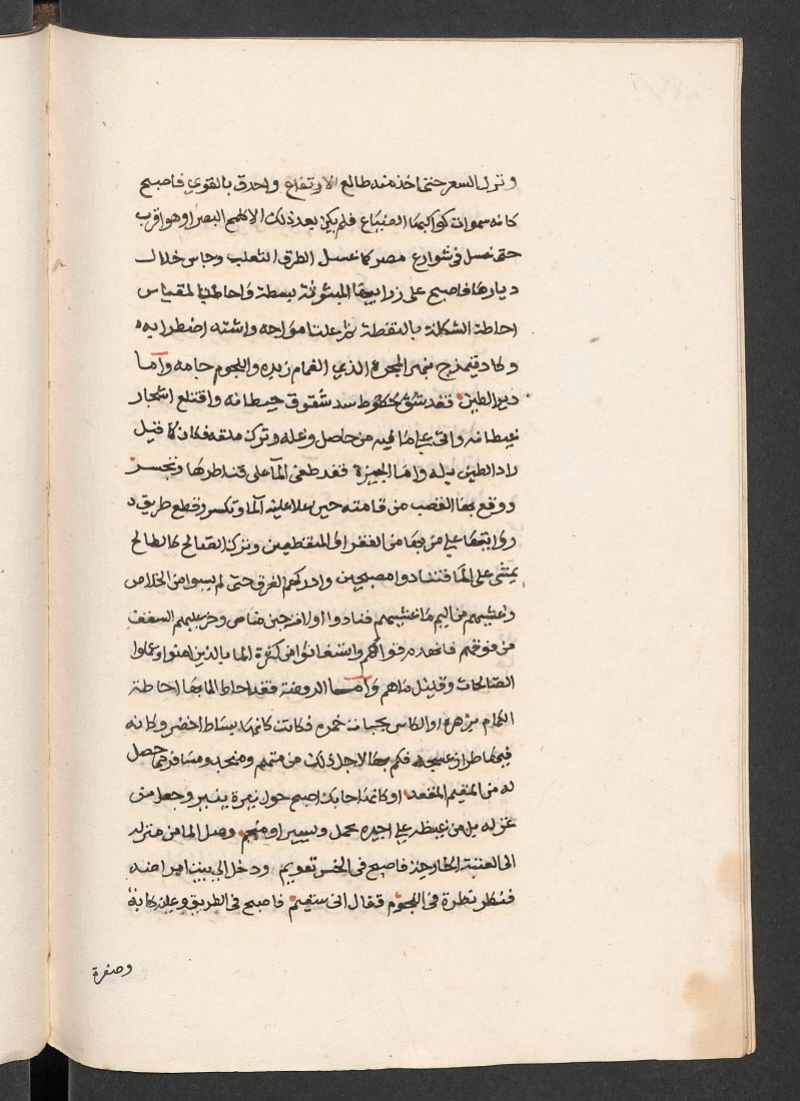 ونزل السعر حتى اخذ منه طالع الارتفاع واحدق بالقرى فاصبح
كانه سموات كواكبها الضياع فلم يكن بعد ذلك الا كلمح البصر او هو اقرب
حتى عسل فى شوارع مصر كما عسل الطريق الثعلب وجاس خلال
ديارها فاصبح على زرابيها المبثوثة بسطة واحاط بالمقياس
احاطة الشكلة بالنقطة ثم علت امواجه واشتد اضطرابه
وكاد يمتزج بنهر المجرة الذي الغمام زبده والنجوم حبابه واما
دير الطين فقد شق خطوط سد شقوق حيطانه واقتلع اشجار
غيطانه واتى على ما فيه من حاصل وغله وتركه ملقه فكان كما قيل
زاد الطين بله واما الجيزة فقد طغى الماء على قناطرها وتجسر
ووقع بها القصب من قامته حين علا عليه الماء وتكسر وقطع طريق
زوايتها على من بها من الفقراء والمنقطعين وترك الصالح كالطالح
يمشى على الماء فتنادوا مصبحين وادركهم الغرق حتى لم يبسوا من الخلاص
وغشيهم من اليم ما غشيهم فنادوا ولات حين مناص وخر عليهم السقف
من فوقهم فانهدم واستغاثوا من كثرة الماء بالذين امنوا وعملوا
الصالحات وقليل ما هم واما الروضة فقد احاط الماء بها احاطة
الكمام بزهره او الكاس بحباب خمره فكانت كانها بساط اخضر وكانه
فيها طراز فكم بها لاجل ذلك من متهم ومنجد ومسافر حصل
له من المقيم المقعد او كانها حايك اصبح حول نيرة ينير وجعل من
غزله بل من غيظه على اجيره يحمل ويسير او منجم وصل الماء من منزله
الى العتبة الخارجة فاصبح فى انحس تقويم ودخل الى بيت امراضه
فنظر نظرة فى النجوم فقال انى سقيم فاصبح فى الطريق وعليه كابة
وصفرة